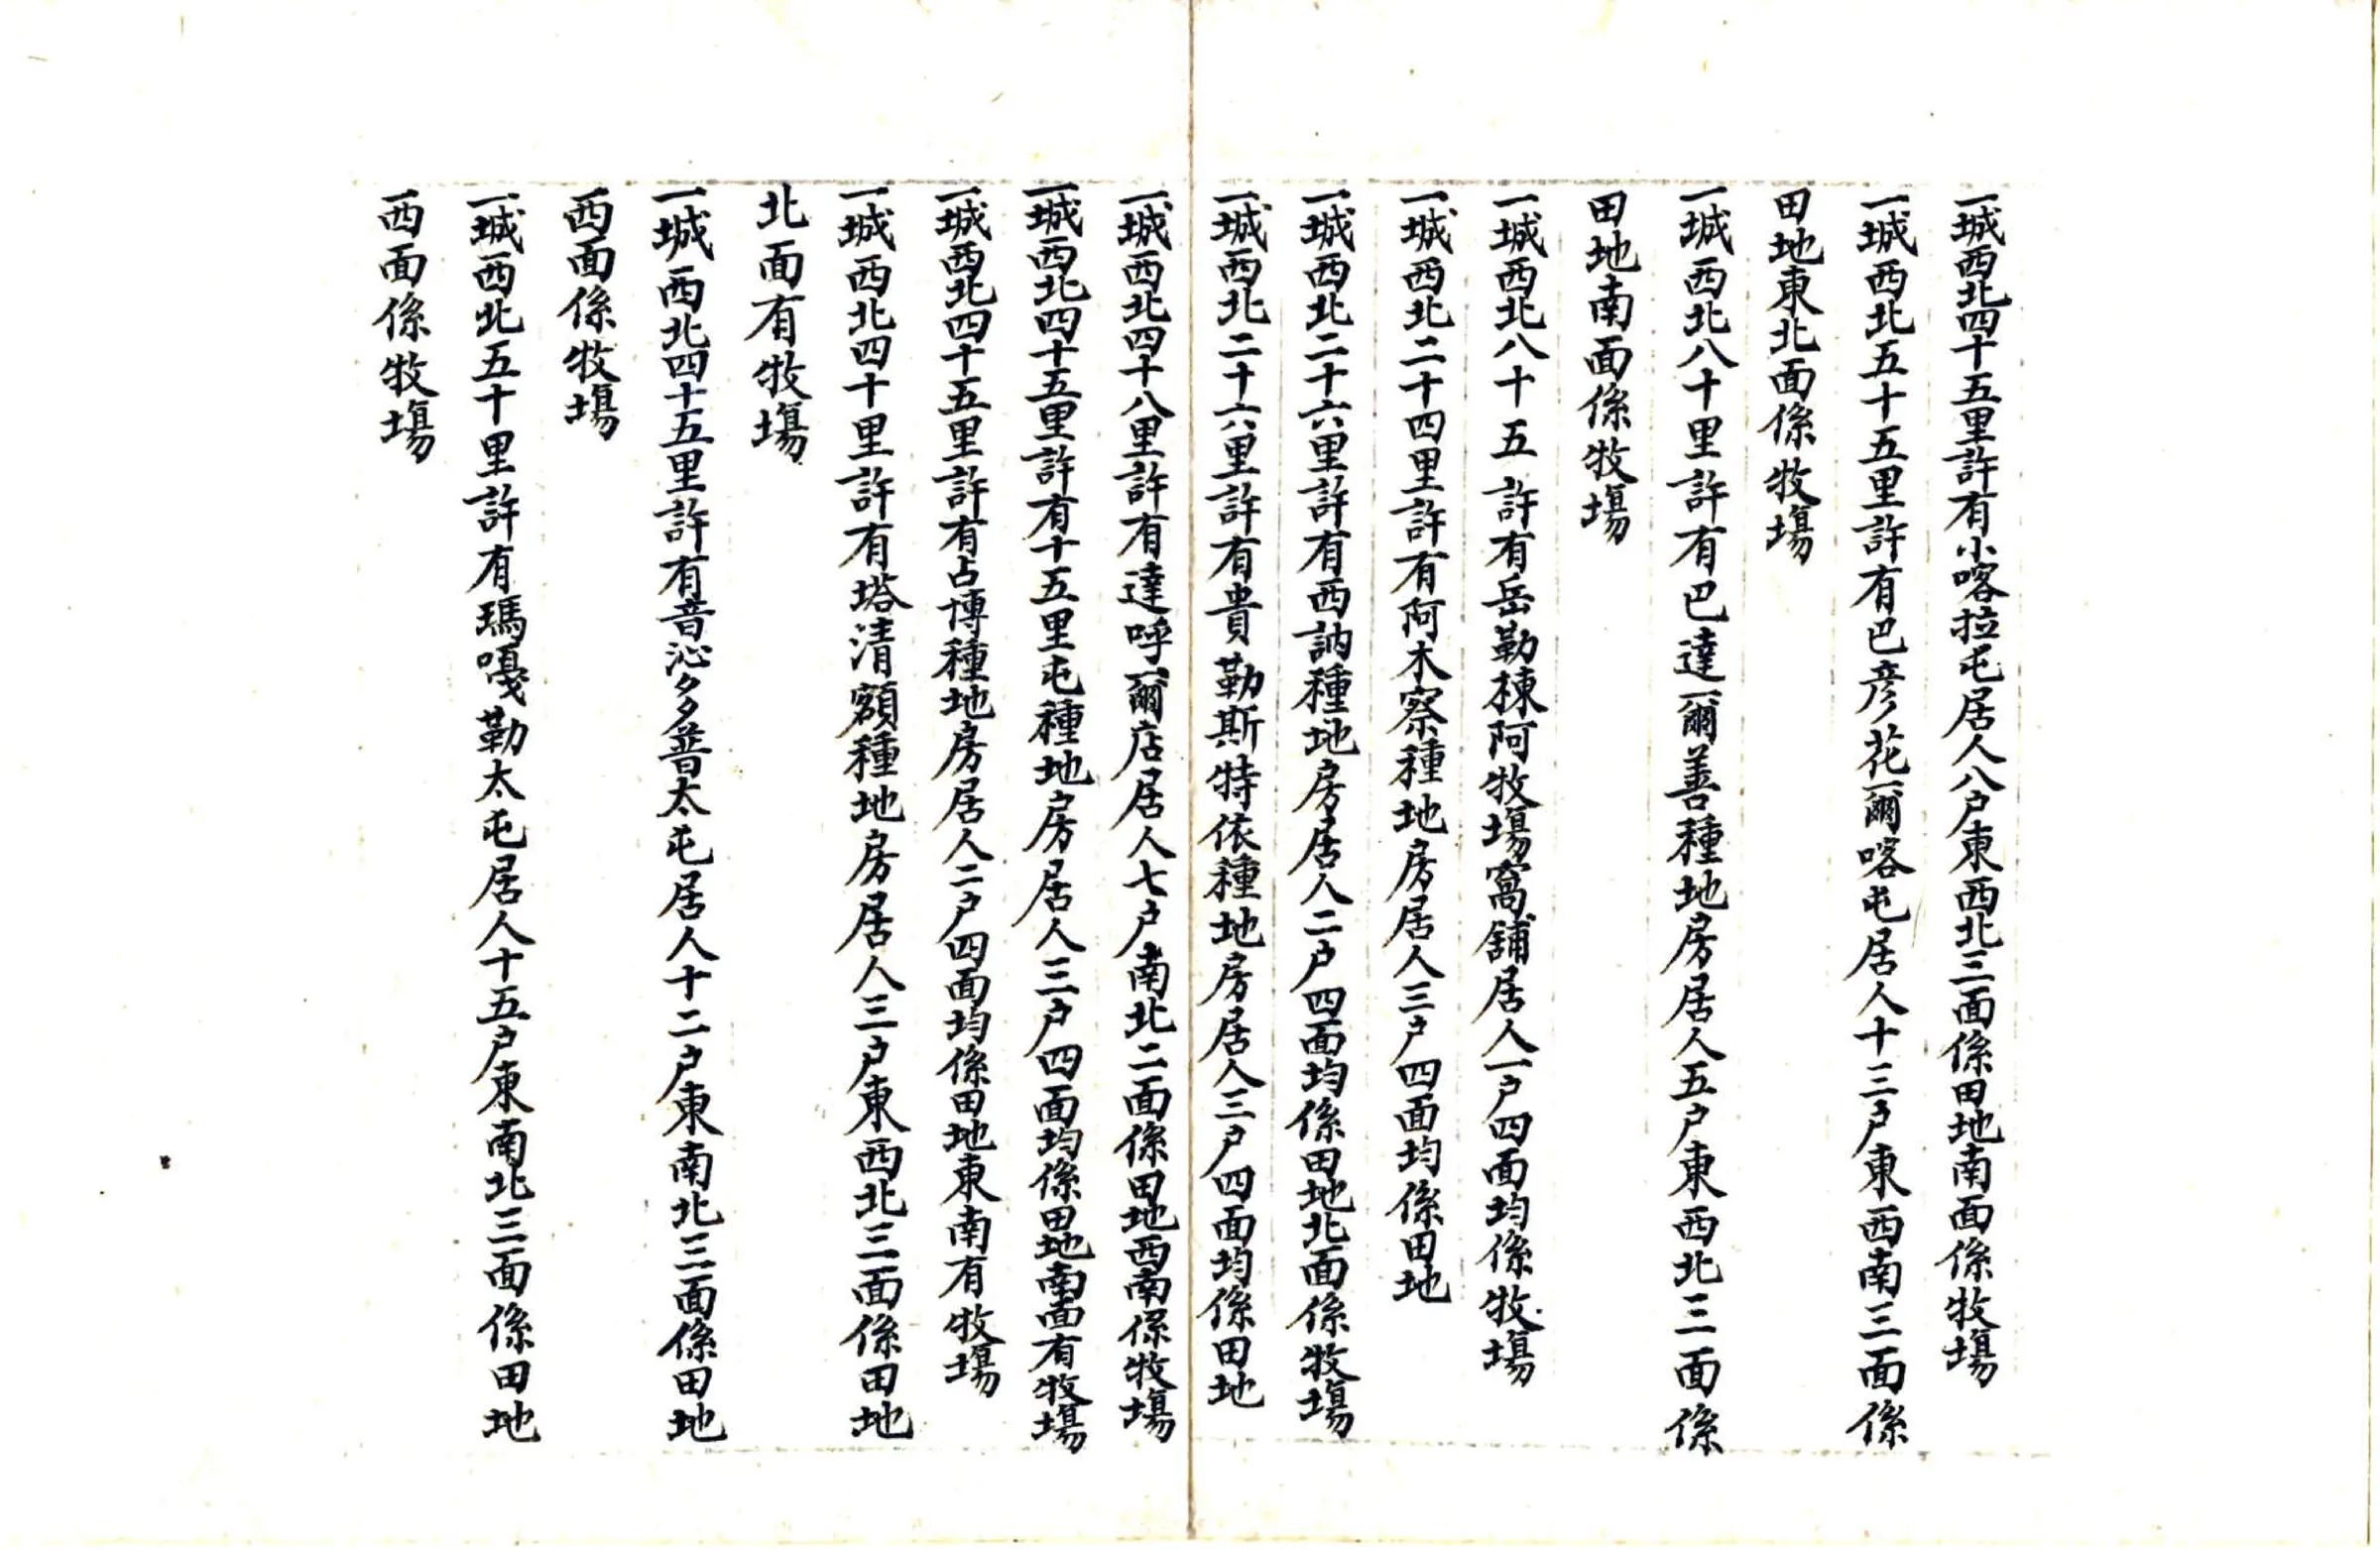 一城西北四十五里許有小喀拉屯居人八户東西北三面係田地南面係牧塲
一城西北五十五里許有巴彦花爾喀屯居人十三户東西南三面係
田地東北面係牧塲
一城西北八十里許有巴達爾善種地房居人五户東西北三面係
田地南面係牧塲
一城西北八十五許有岳勒棟阿牧塲窩舖居人一户四面均係牧塲
一城西北二十四里許有阿木察種地房居人三户四面均係田地
一城西北二十六里許有西訥種地房居人二户四面均係田地北面係牧塲
一城西北二十六里許有貴勒斯特依種地房居人三户四面均係田地
一城西北四十八里許有達呼爾店居人七户南北二面係田地西南係牧塲
一城西北四十五里許有十五里屯種地房居人三户四面均係田地南面有牧塲
一城西北四十五里許有占博種地房居人二户四面均係田地東南有牧塲
一城西北四十里許有塔清額種地房居人三户東西北三面係田地
北面有牧塲
一城西北四十五里許有音沁多普太屯居人十二户東南北三面係田地
西面係牧塲
一城西北五十里許有瑪嘎勒太屯居人十五户東南北三面係田地
西面係牧塲